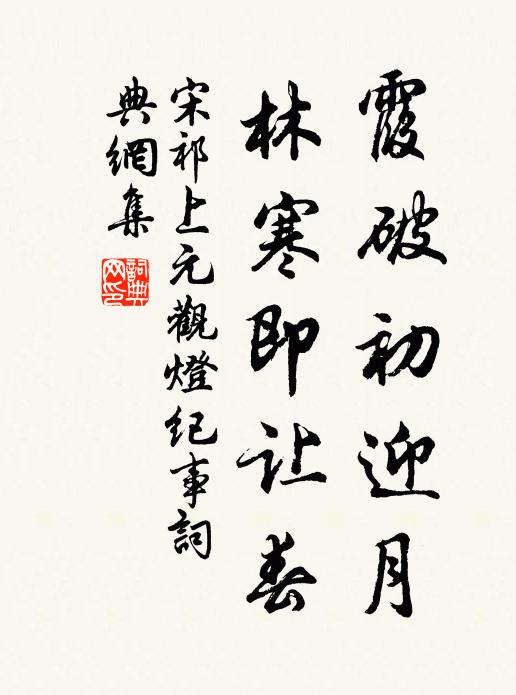 霞破初迎月
林寒即让春
宋祁上元觀燈纪事詞
典網集
詞典网印